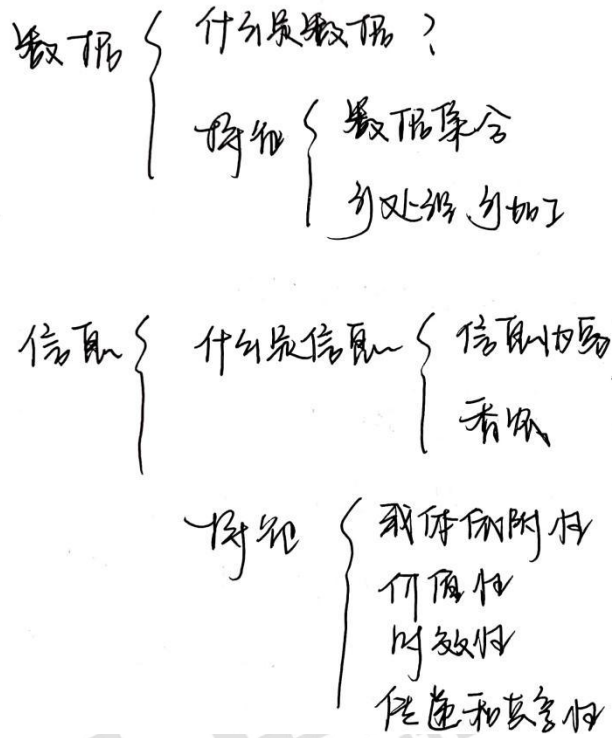 数据
什么是数据？
特征
数据集合
可处理、可加工
信息
什么是信息
信息
香农
特征
载体依附性
价值性
时效性
传递和共享性